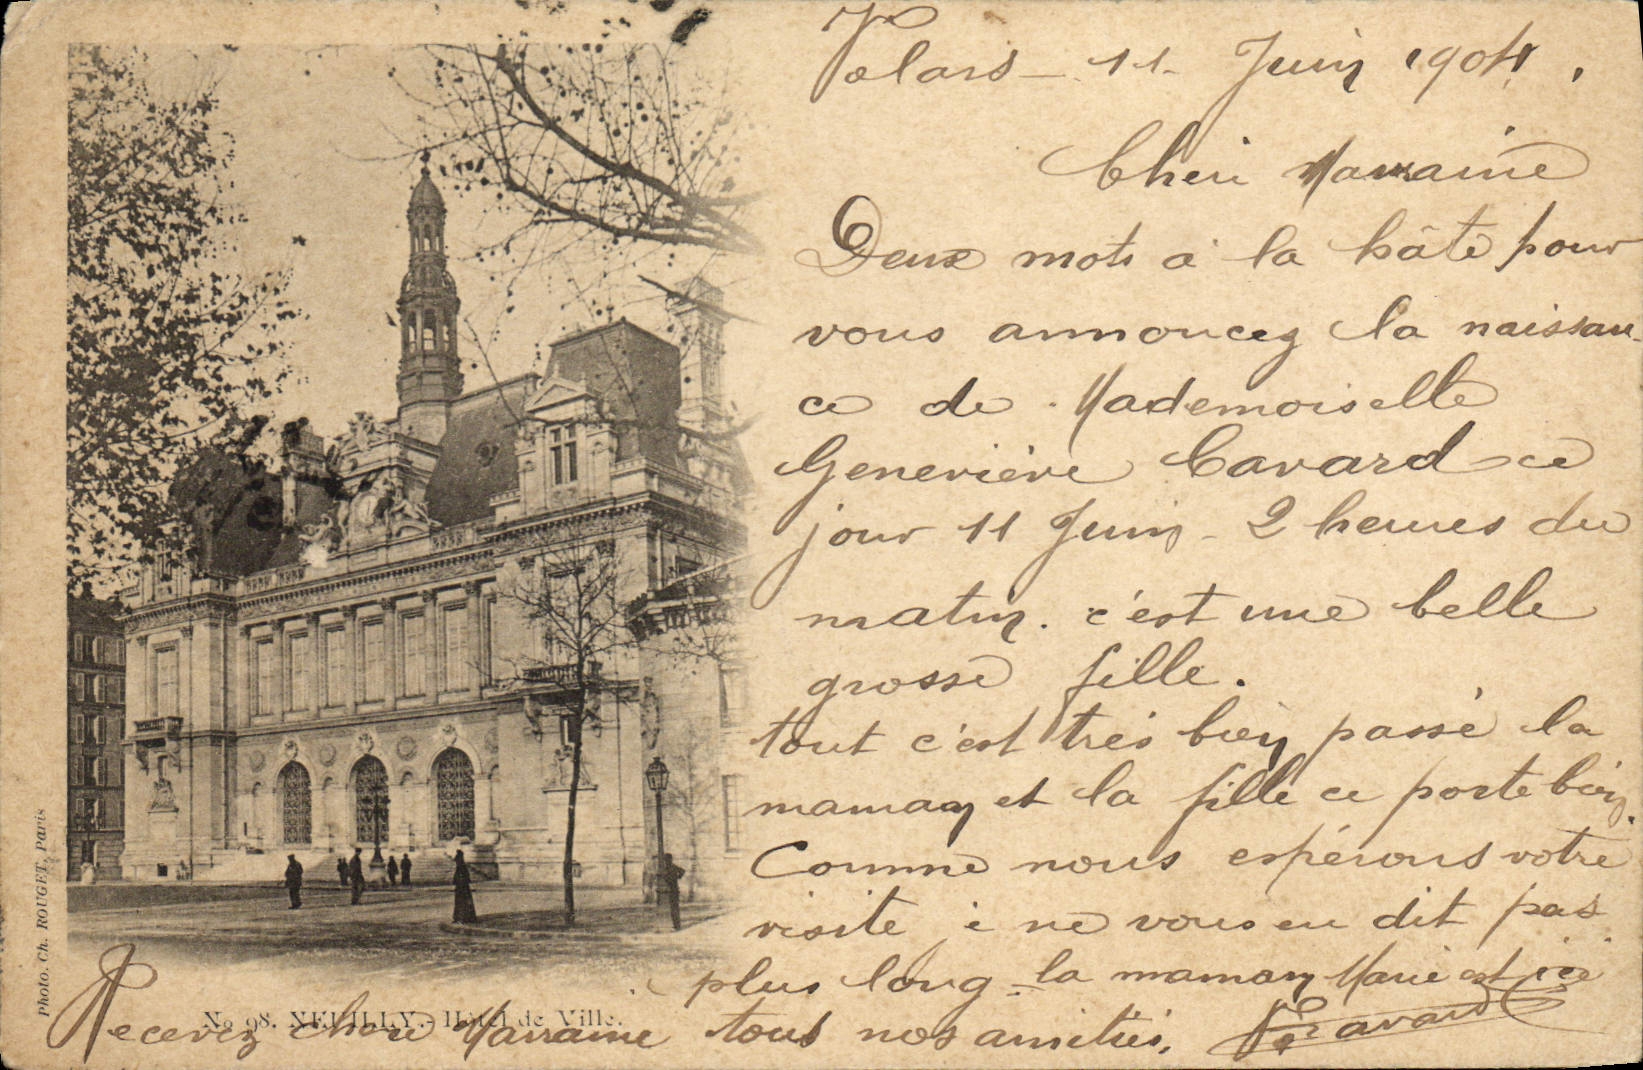 Velars - 11 Juin 1904.
Cheri Marraine
Deux mots a la hâte pour
vous annoncez la naissan-
ce de Mademoiselle
Geneviève Cavard ce
jour 11 Juin - 2 heures du
matin. c'est une belle
grosse fille.
tout c'est très bien passé la
maman et la fille ce porte bien.
Comme nous espérons votre
visite je ne vous en dit pas
plus long. la maman Marie est ici
Recevez chere Marraine tous nos amitiés, Cavard
No 98. NEUILLY. - Hôtel de Ville.
Photo. Ch. ROUGET, Paris